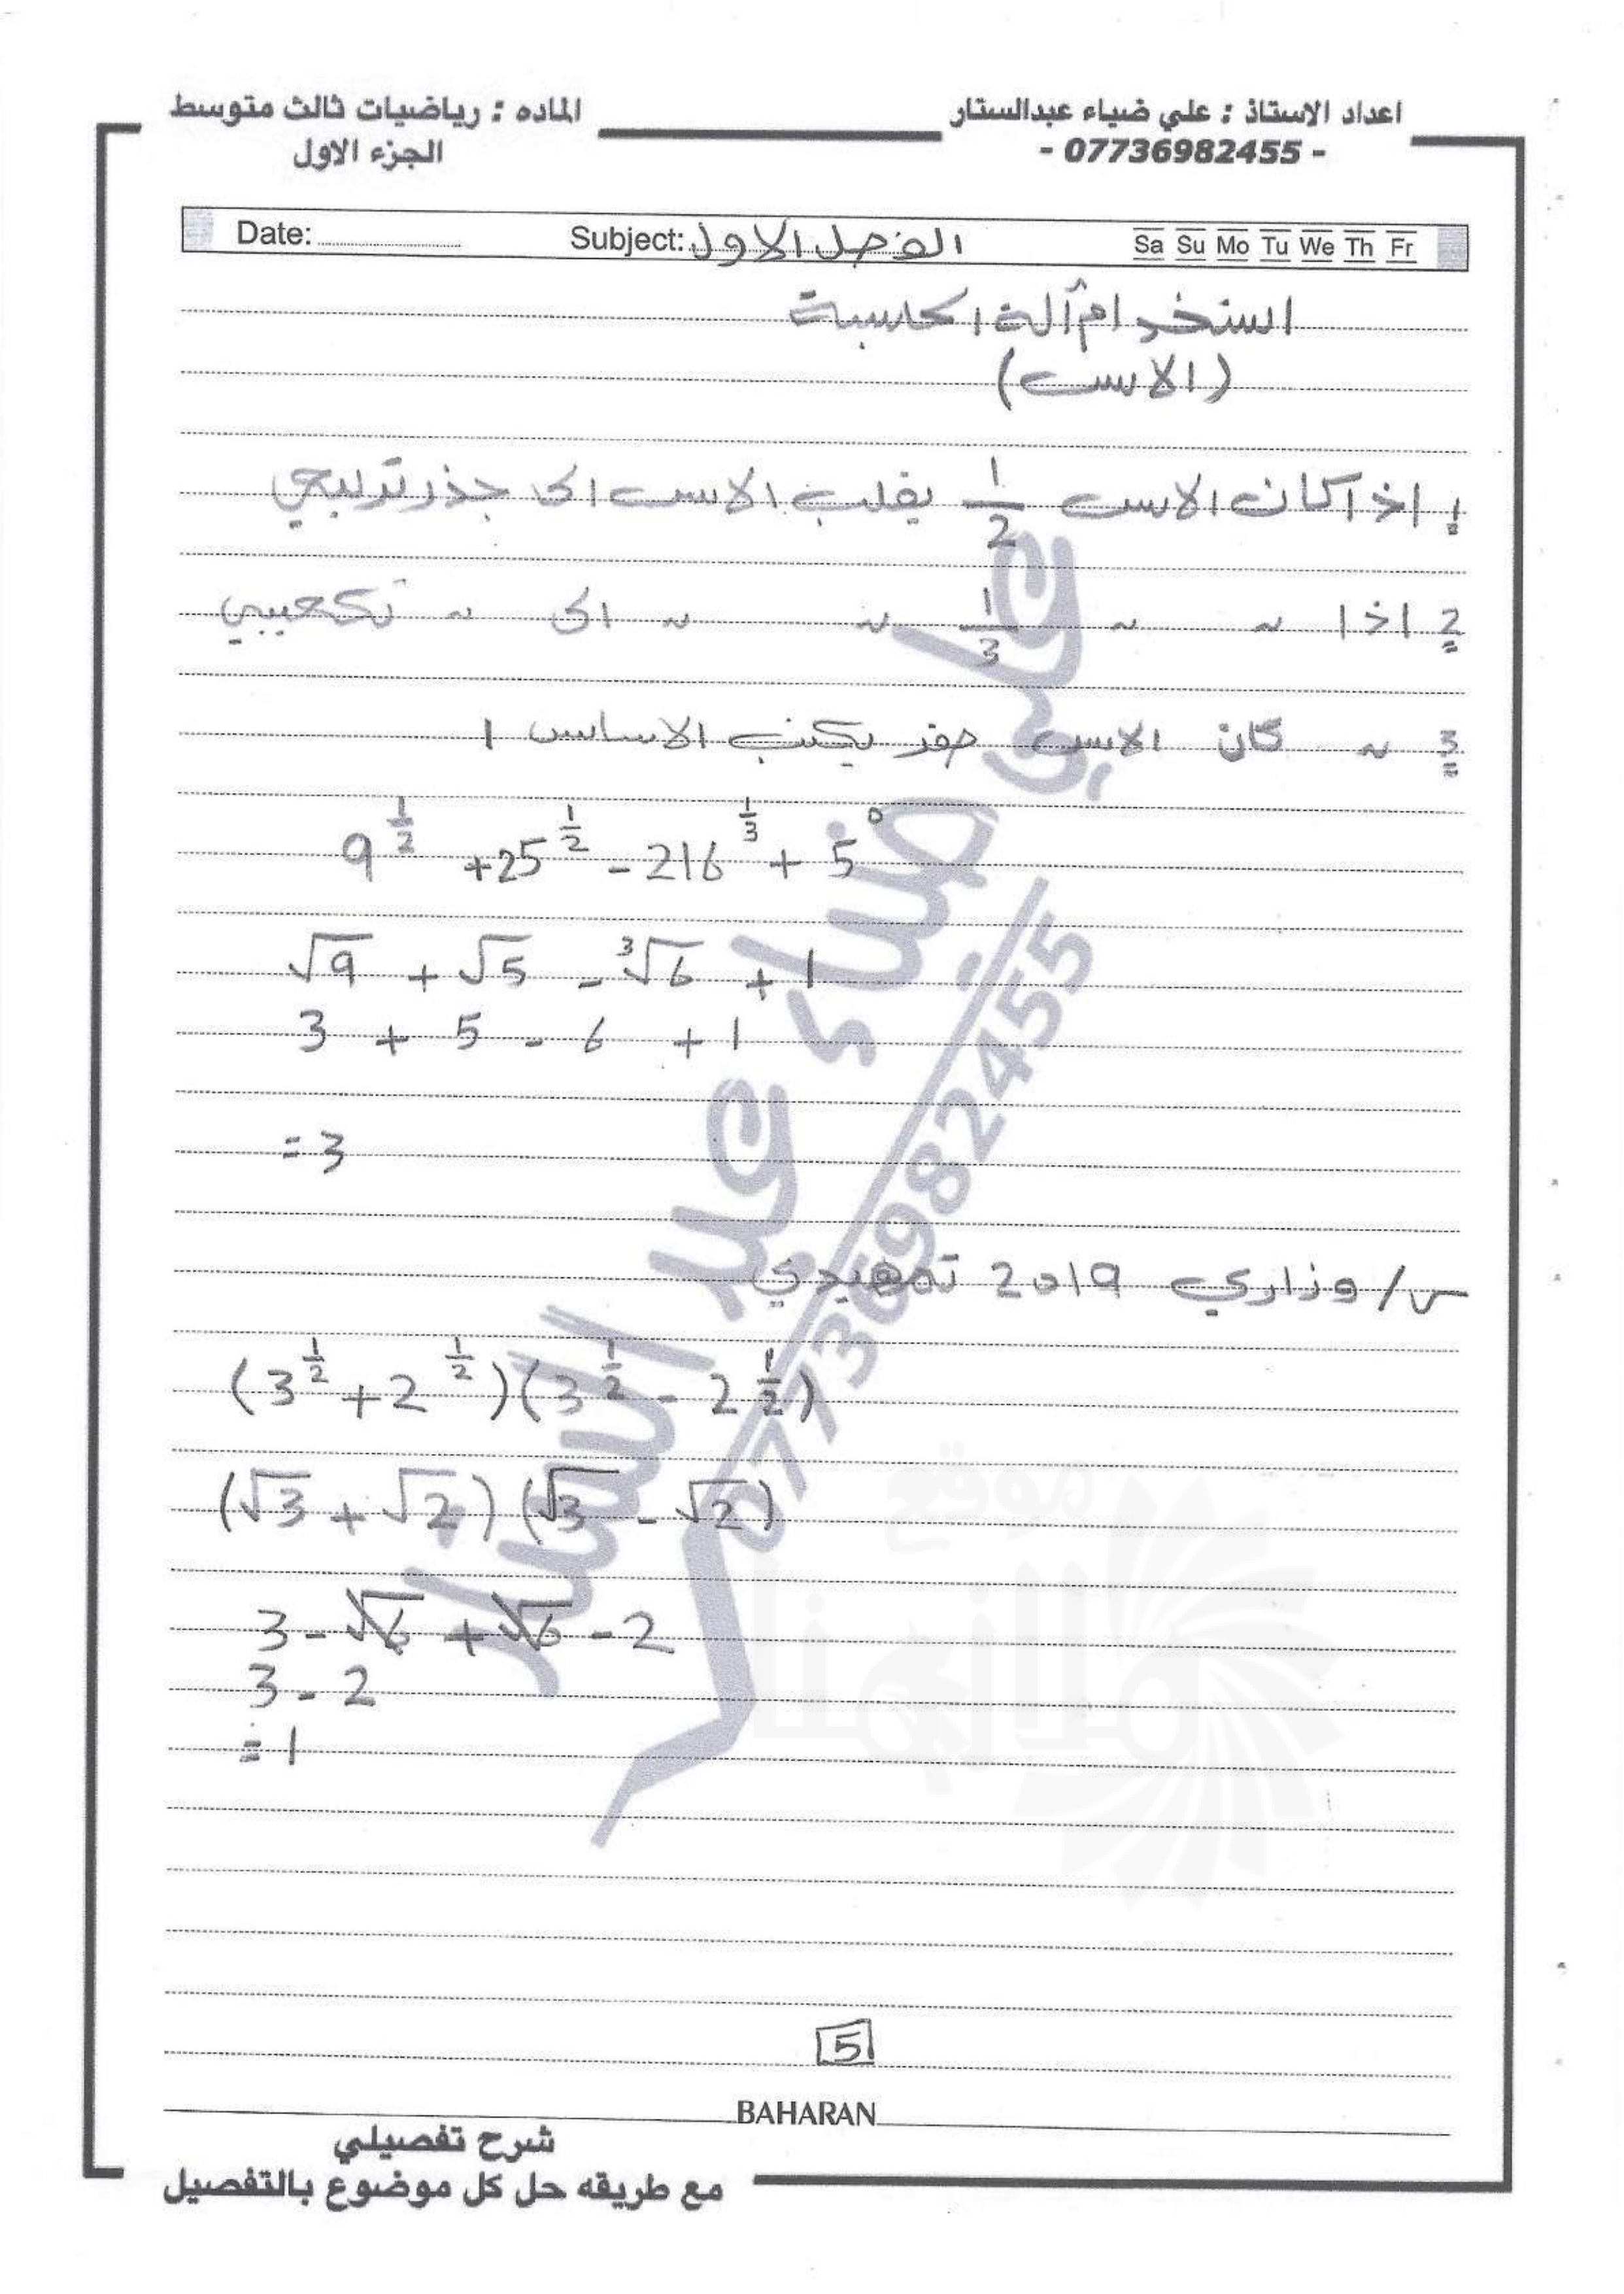 اعداد الاستاذ : علي ضياء عبدالستار
- 07736982455 -
الماده : رياضيات ثالث متوسط
الجزء الاول
Date: Subject: الفصل الاول Sa Su Mo Tu We Th Fr
استخدام آلة الحاسبة
(الاسس)
1 اذا كان الاسس 1/2 يقلب الاسس الى جذر تربيعي
2 اذا ~ ~ 1/3 ~ ~ الى ~ تكعيبي
3 ~ كان الاسس صفر يكتب الاساس 1
9^{1/2} + 25^{1/2} - 216^{1/3} + 5^0
√9 + √5 - ∛6 + 1
3 + 5 - 6 + 1
= 3
س/ وزاري 2019 تمهيدي
(3^{1/2} + 2^{1/2})(3^{1/2} - 2^{1/2})
(√3 + √2)(√3 - √2)
3 - √6 + √6 - 2
3 - 2
= 1
علي ضياء عبد الستار
07736982455
موقع
ملازمنا
5
BAHARAN
شرح تفصيلي
مع طريقه حل كل موضوع بالتفصيل